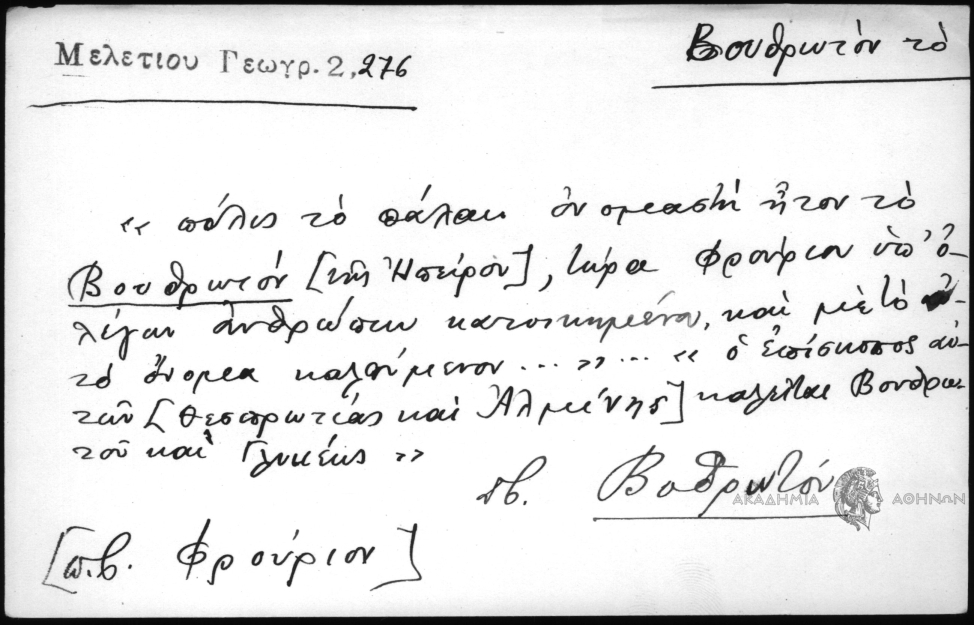 Μελετίου Γεωγρ. 2, 276
Βουθρωτὸν τὸ
«πόλις τὸ πάλαι ὀνομαστὴ ἦτον τὸ
Βουθρωτόν [τῆς Ἠπείρου], τώρα φρούριον ὑπ' ὀ-
λίγων ἀνθρώπων κατοικημένον, καὶ μὲ τὸ αὐ-
τὸ ὄνομα καλούμενον...»... «ὁ ἐπίσκοπος αὐ-
τῶν [Θεσπρωτίας καὶ Ἀλμήνης] καλεῖται Βουθρω-
τοῦ καὶ Γλυκέως»
πβ. Βοθρωτόν
ΑΚΑΔΗΜΙΑ ΑΘΗΝΩΝ
[π.β. Φρούριον]